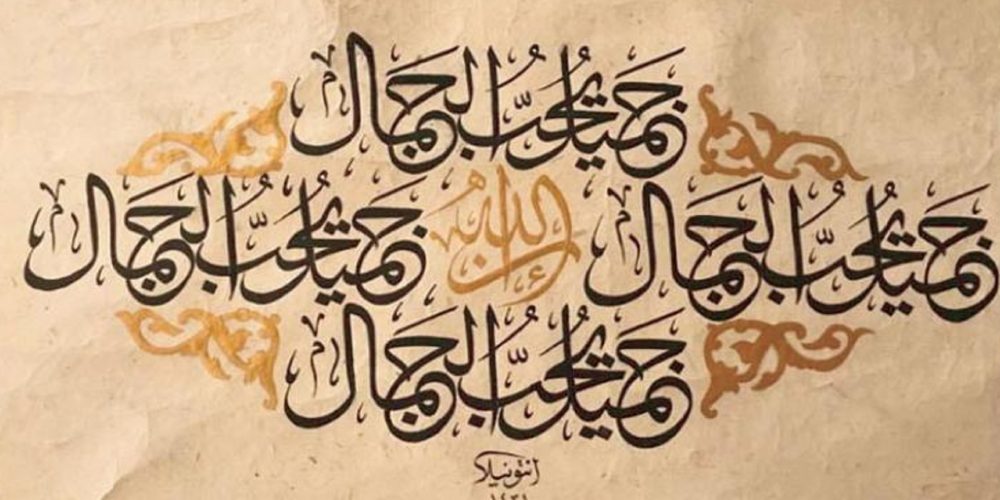 جميل يحب الجمال
جميل يحب الجمال
إن الله
جميل يحب الجمال
جميل يحب الجمال
انتونيلا
١٤٣١